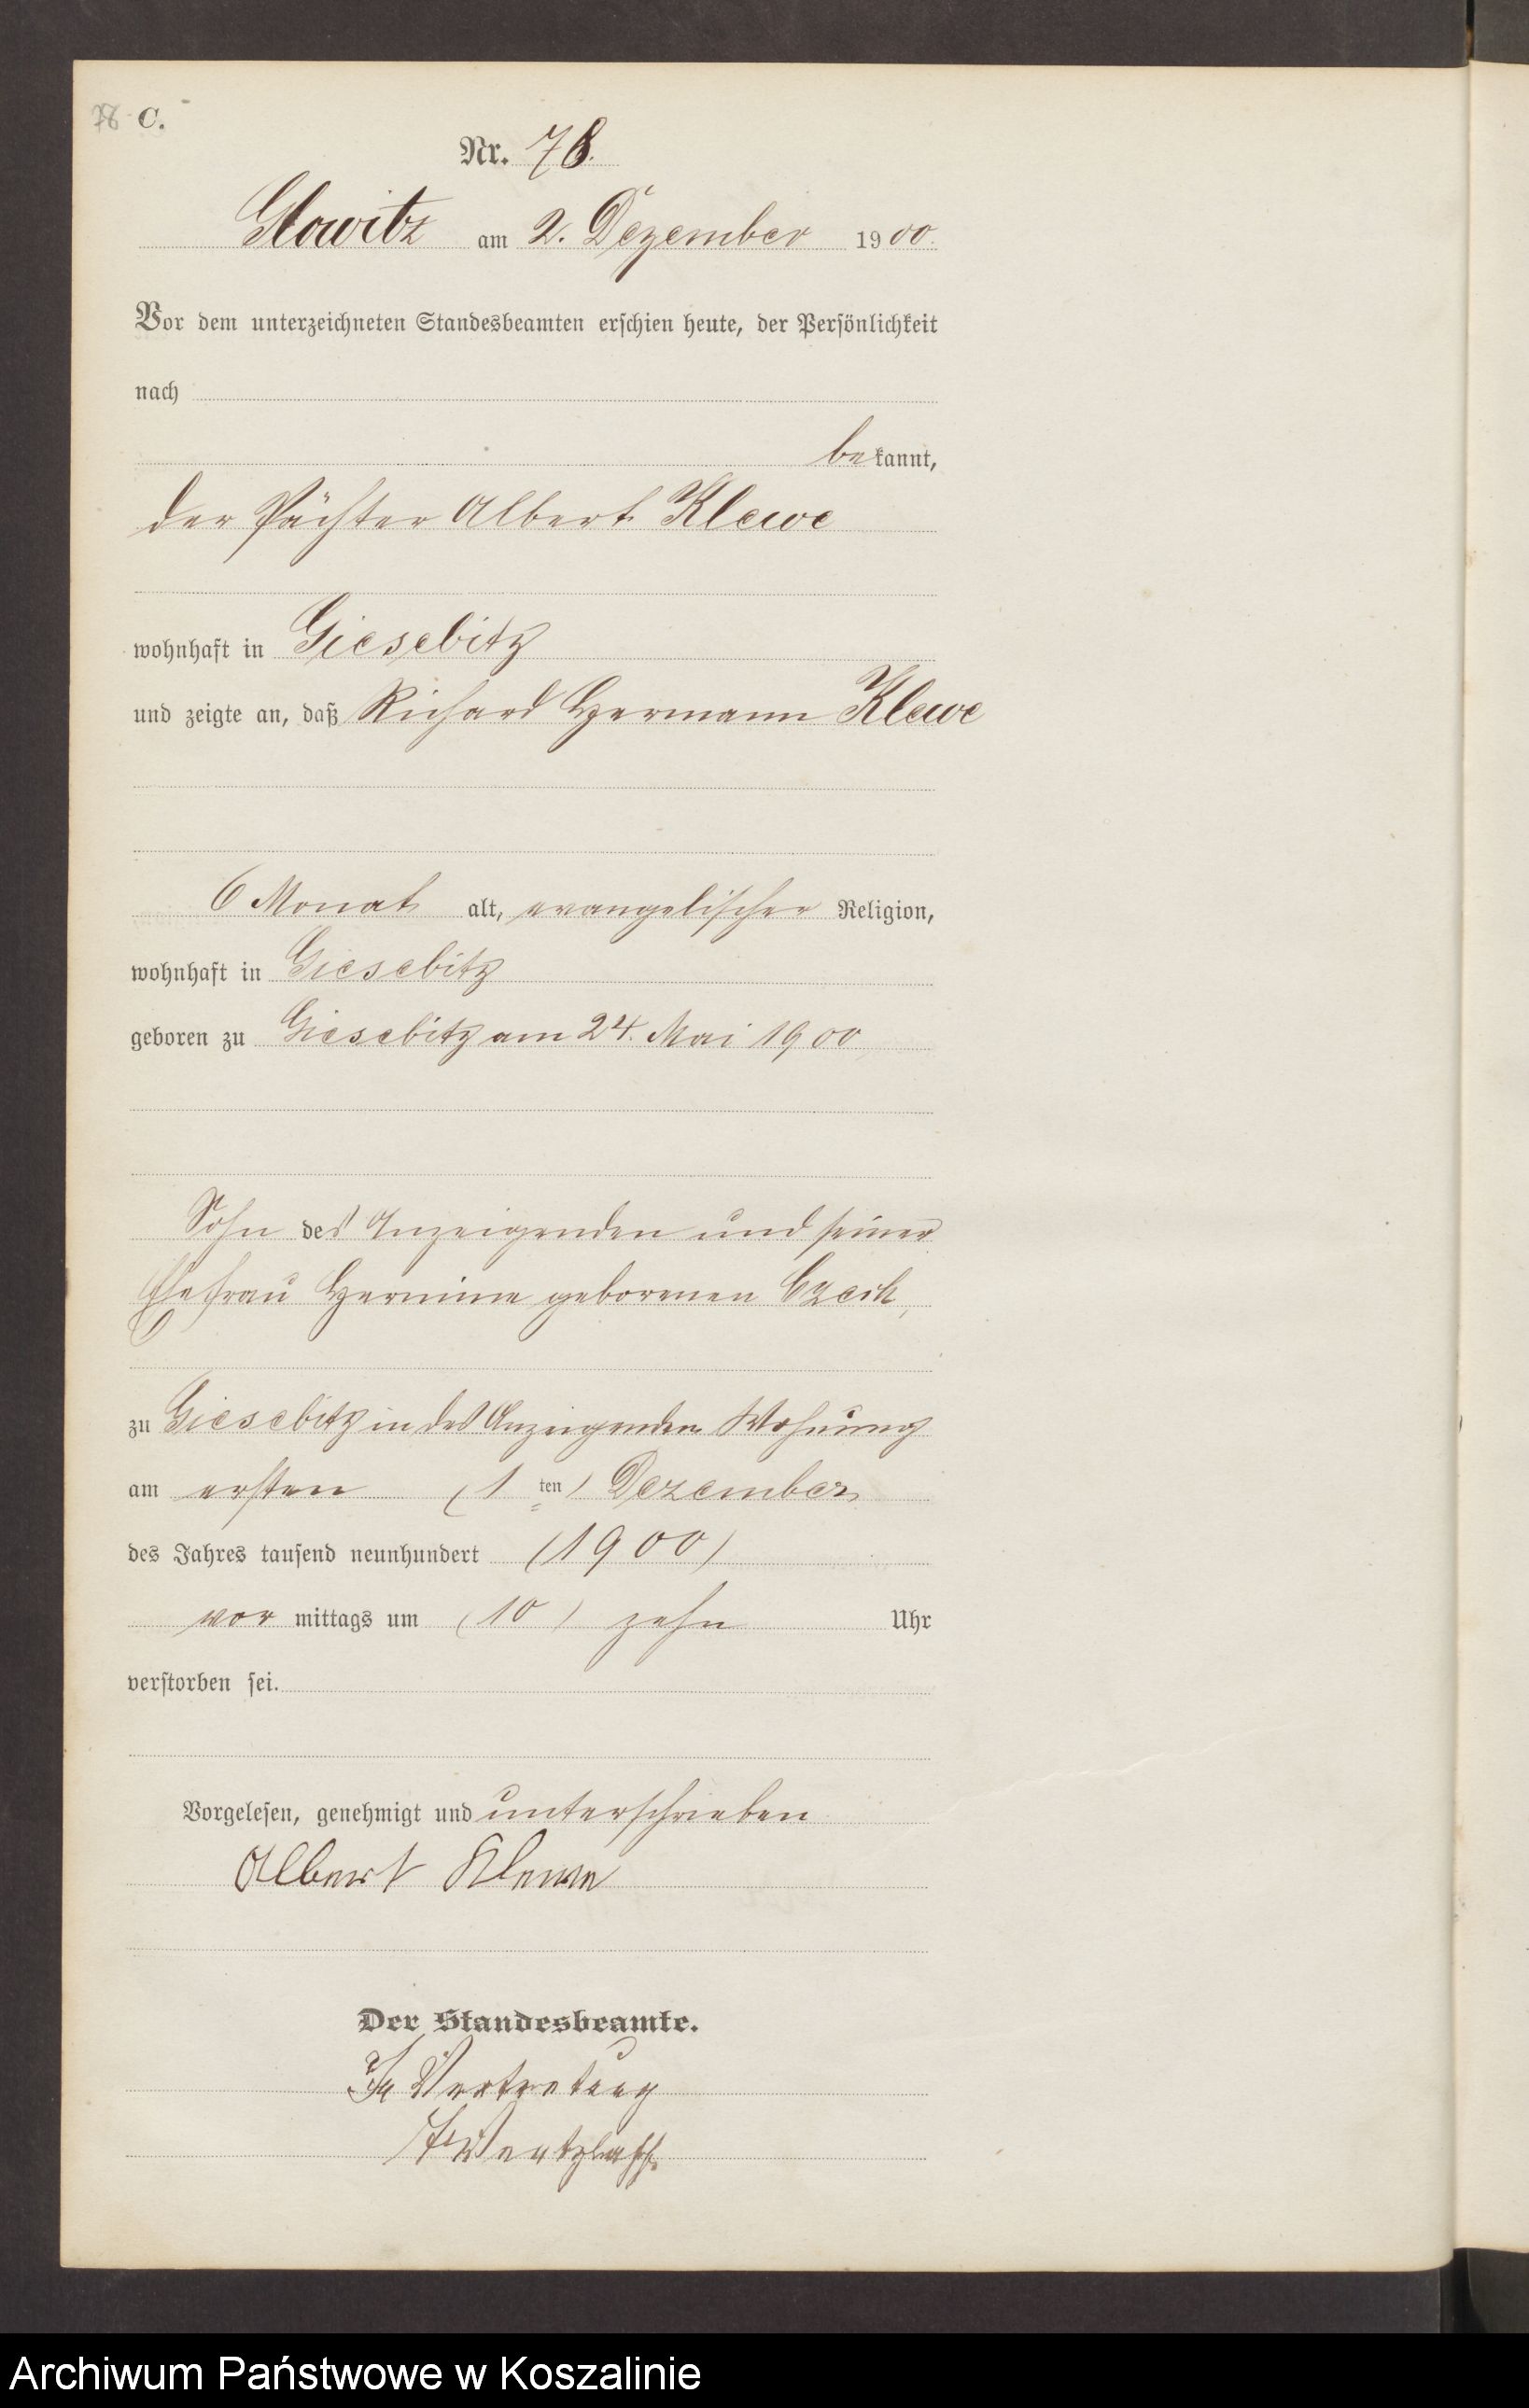 78 C.
Nr. 78.
Glowitz am 2. Dezember 1900.
Vor dem unterzeichneten Standesbeamten erschien heute, der Persönlichkeit
nach
bekannt,
der Pächter Albert Klewe
wohnhaft in Giesebitz
und zeigte an, daß Richard Hermann Klewe
6 Monat alt, evangelischer Religion,
wohnhaft in Giesebitz
geboren zu Giesebitz am 24. Mai 1900
Sohn des Anzeigenden und seiner
Ehefrau Hermine geborenen Czeik,
zu Giesebitz in des Anzeigenden Wohnung
am ersten (1 ten) Dezember
des Jahres tausend neunhundert (1900)
vor mittags um (10) zehn Uhr
verstorben sei.
Vorgelesen, genehmigt und unterschrieben
Albert Klewe
Der Standesbeamte.
In Vertretung
Wentzlaff.
Archiwum Państwowe w Koszalinie